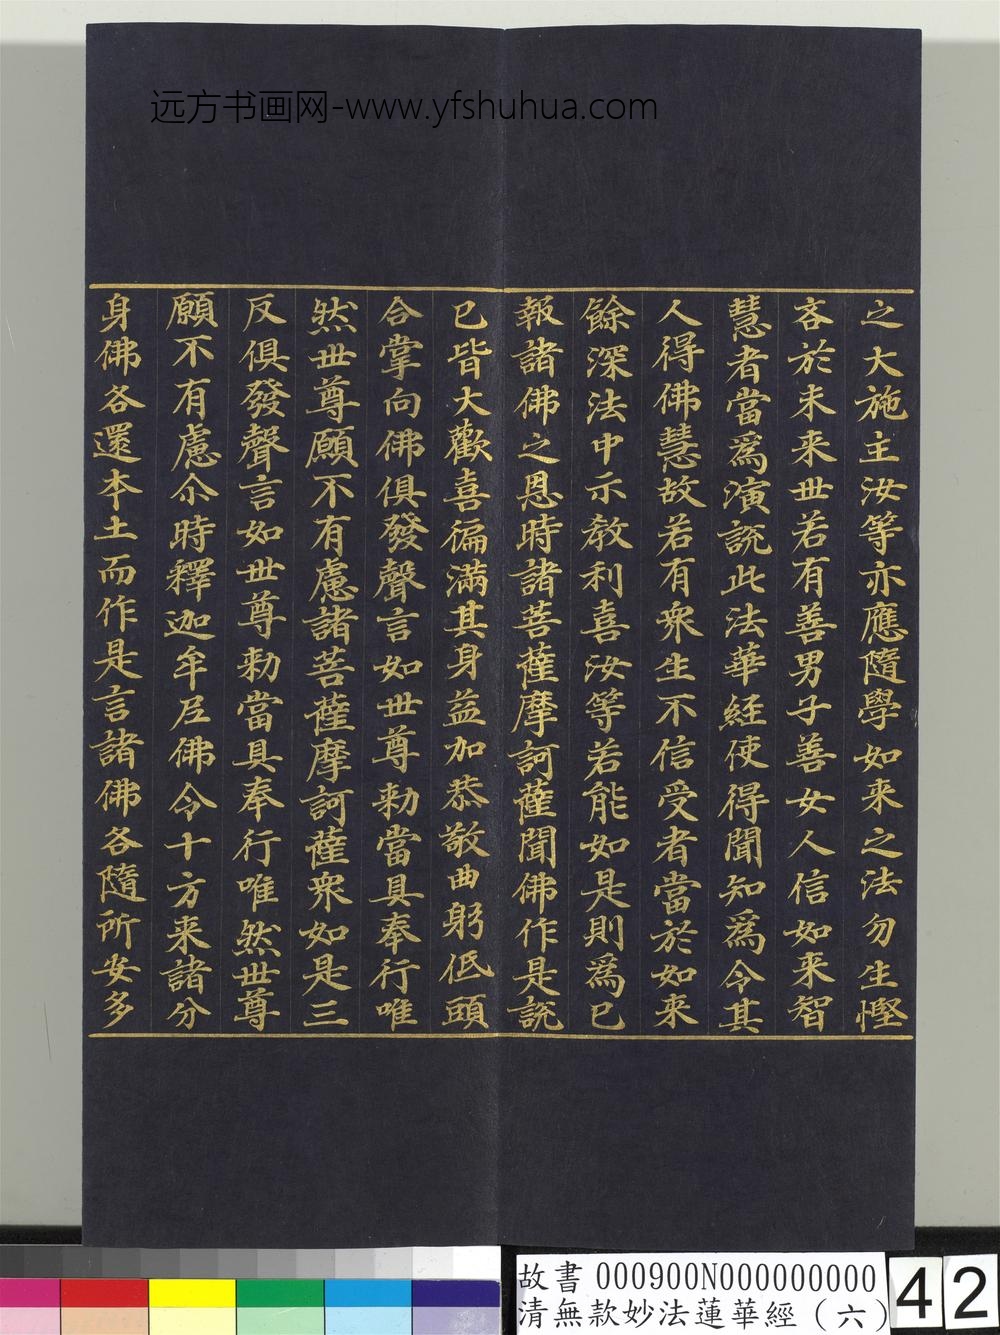 远方书画网-www.yfshuhua.com
之大施主汝等亦應隨學如來之法勿生慳
吝於未来世若有善男子善女人信如来智
慧者當為演説此法華經使得聞知為令其
人得佛慧故若有眾生不信受者當於如来
餘深法中示教利喜汝等若能如是則為已
報諸佛之恩時諸菩薩摩訶薩聞佛作是説
已皆大歡喜徧滿其身益加恭敬曲躬低頭
合掌向佛俱發聲言如世尊勅當具奉行唯
然世尊願不有慮諸菩薩摩訶薩眾如是三
反俱發聲言如世尊勅當具奉行唯然世尊
願不有慮尒時釋迦牟尼佛令十方来諸分
身佛各還本土而作是言諸佛各隨所安多
故書 000900N000000000
清無款妙法蓮華經（六）
42